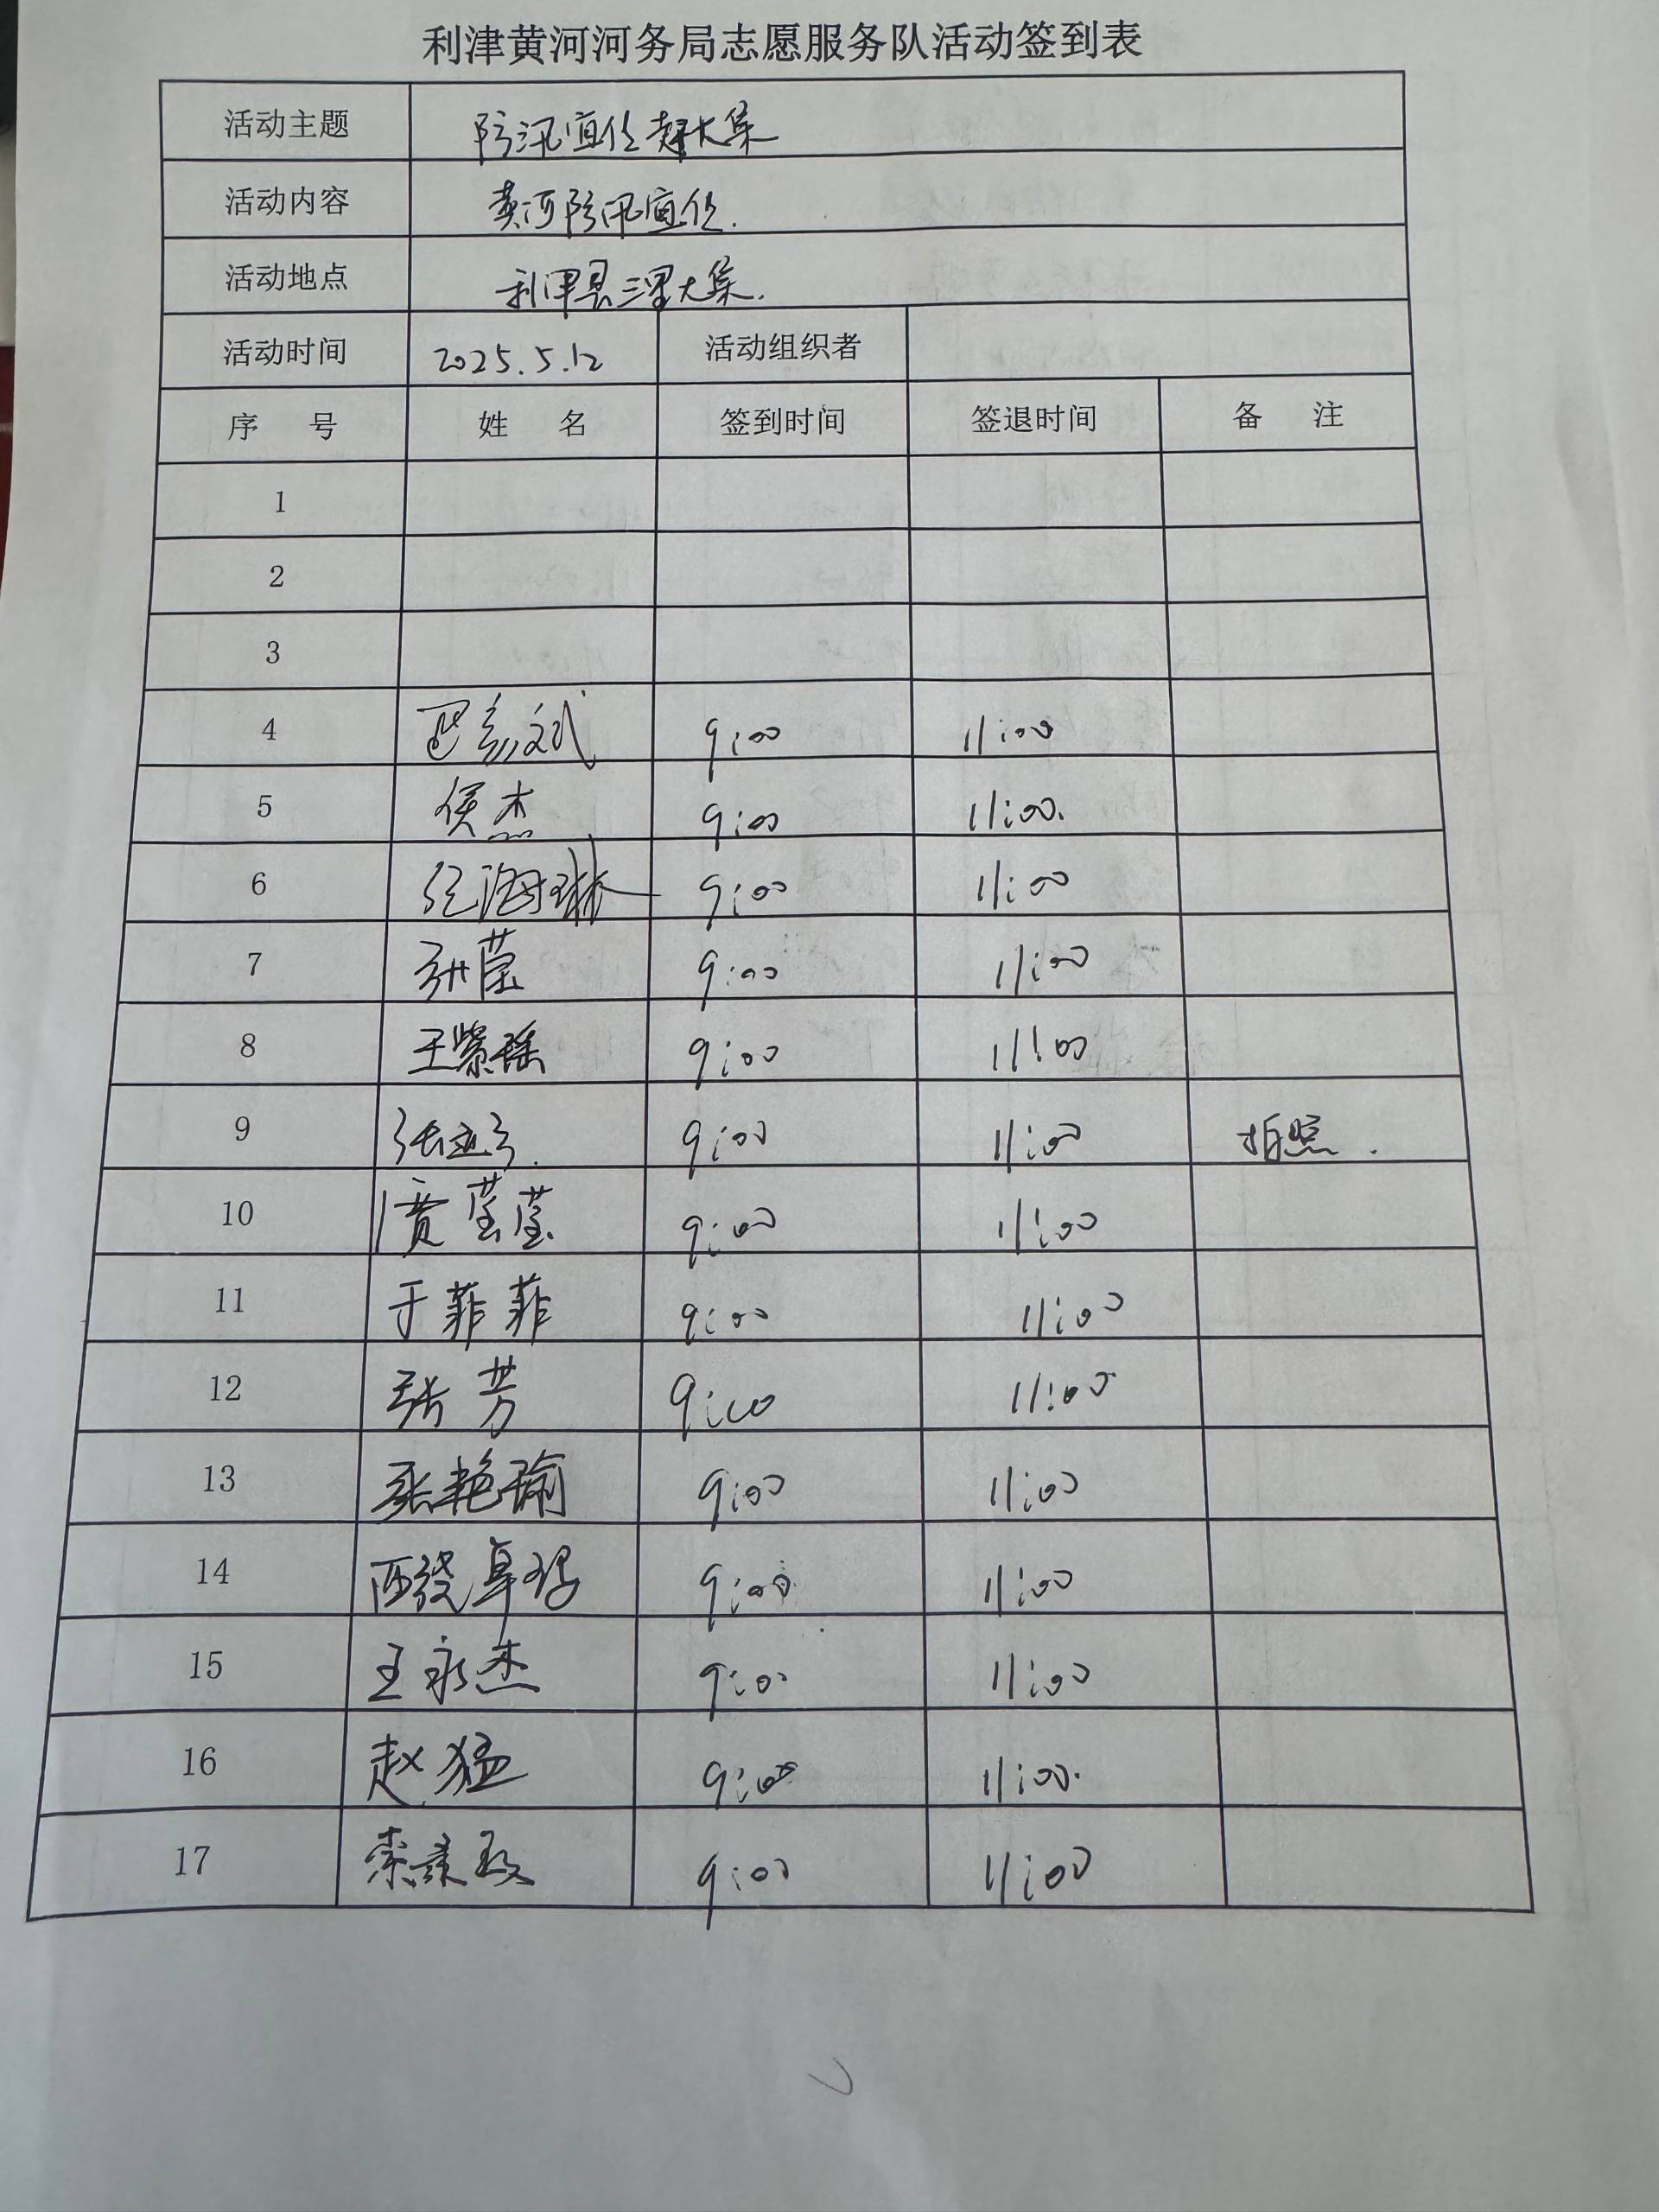 利津黄河河务局志愿服务队活动签到表
活动主题 防汛宣传赶大集
活动内容 黄河防汛宣传.
活动地点 利津县三里大集.
活动时间 2025.5.12 活动组织者
序 号 姓 名 签到时间 签退时间 备 注
1
2
3
4 9:00 11:00
5 侯杰 9:00 11:00.
6 9:00 11:00
7 张莹 9:00 11:00
8 王紫瑶 9:00 11:00
9 9:00 11:00 拍照.
10 贾莹莹 9:00 11:00
11 于菲菲 9:00 11:00
12 张芳 9:00 11:00
13 张艳瑜 9:00 11:00
14 9:00 11:00
15 王永杰 9:00 11:00
16 赵猛 9:00 11:00.
17 9:00 11:00